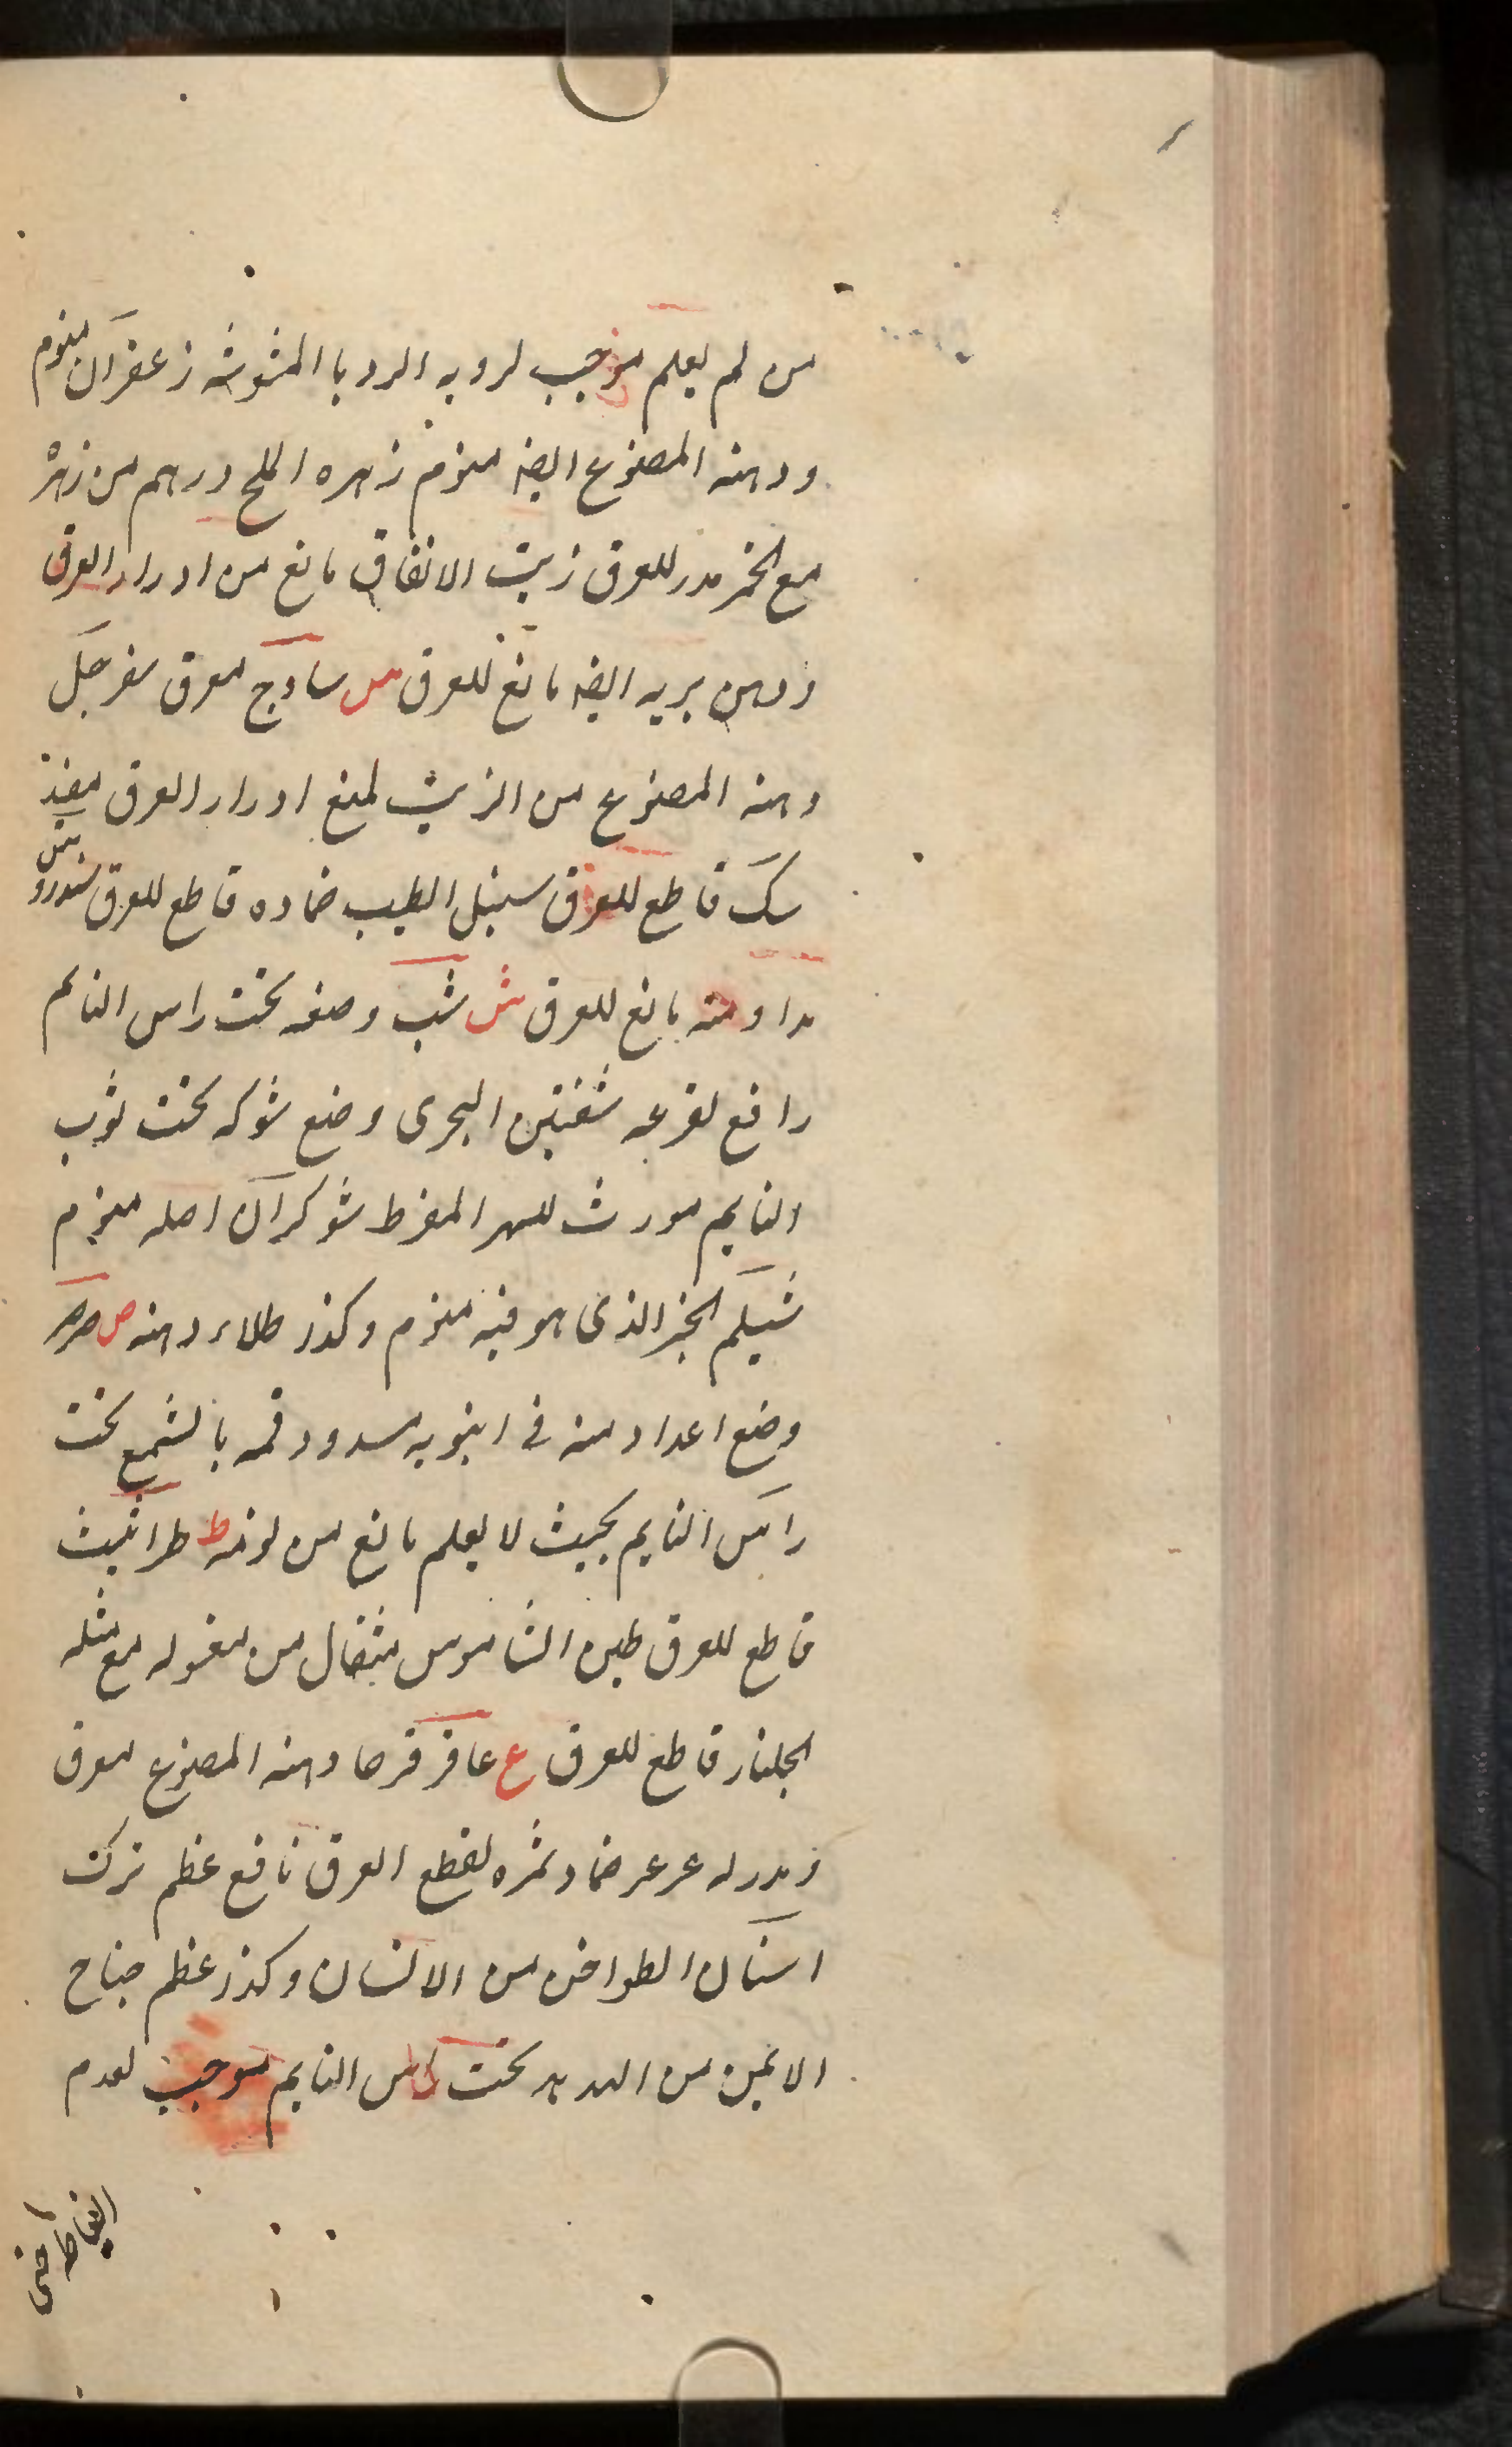 من لم يعلم موجب لرويه الرديا المشوشه زعفران منوم
ودهنه المصنوع ايضه منوم زهره الملح درهم من زهره
مع الخمر مدر للعرق زيت الانفاق مانع من ادرار العرق
ودهن بريه ايضه مانع للعرق س سادج معرق سفرجل
دهنه المصنوع من الزيت لمنع ادرار العرق مفيد
سك قاطع للعرق سنبل الطيب ضماده قاطع للعرق سندروس
مداومته مانع للعرق ش شب وضعه تحت راس النايم
رافع لفزعه شفنين البحرى وضع شوكه تحت ثوب
النايم مورث للسهر المفرط شوكران اصله منوم
شيلم الخبز الذى هو فيه منوم وكذر طلاء دهنه ص صرصر
وضع اعداد منه فى انبوبه مسدود فمه بالشمع تحت
راس النايم بحيث لا يعلم مانع من نومه ط طراثيث
قاطع للعرق طين الشاموس مثقال من مغسوله مع مثله
الجلنار قاطع للعرق ع عاقرقرحا دهنه المصنوع معرق
ومدر له عرعر ضماد ثمره لقطع العرق نافع عظم تركت
اسنان الطواحن من الانسان وكذر عظم جناح
الايمن من الهدهد تحت راس النايم موجب لعدم